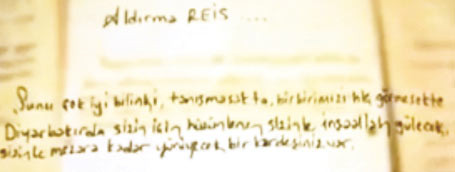 Aldırma REİS ....
Şunu çok iyi bilinki, tanışmasakta, birbirimizi hiç görmesekte
Diyarbakırda sizin için hüzünlenen sizinle inşaallah gülecek,
sizinle mezara kadar yürüyecek bir kardeşiniz var.